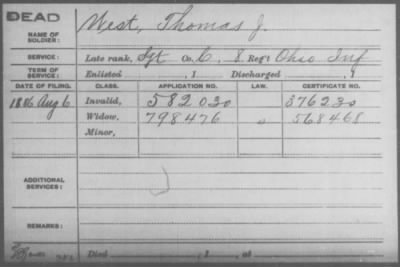 DEAD
NAME OF SOLDIER: West, Thomas J.
SERVICE: Late rank, Sgt Co. C, 8 Reg't Ohio Inf
TERM OF SERVICE: Enlisted , 1 Discharged , 1
DATE OF FILING. CLASS. APPLICATION NO. LAW. CERTIFICATE NO.
Aug 6 Invalid, 582030 376230
Widow, 798476 568468
Minor,
ADDITIONAL SERVICES:
REMARKS:
Died , 1 , at